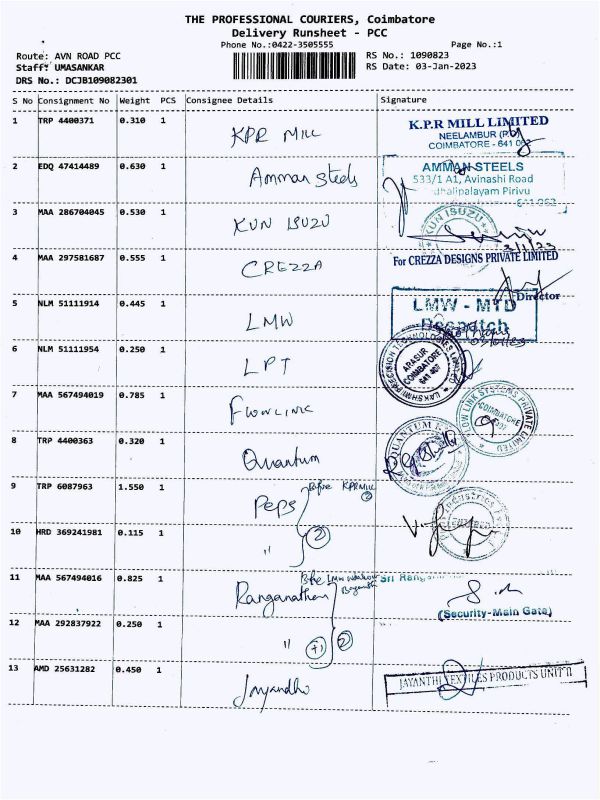 THE PROFESSIONAL COURIERS, Coimbatore
Delivery Runsheet - PCC
Phone No.:0422-3505555 Page No.:1
Route: AVN ROAD PCC RS No.: 1090823
Staff: UMASANKAR RS Date: 03-Jan-2023
DRS No.: DCJB109082301
S No Consignment No Weight PCS Consignee Details Signature
1 TRP 4400371 0.310 1 KPR MILL
K.P.R MILL LIMITED
NEELAMBUR
COIMBATORE - 641 062
2 EDQ 47414489 0.630 1 Amman Steels
AMMAN STEELS
533/1 A1, Avinashi Road
dhalipalayam Pirivu
641 062
3 MAA 286704045 0.530 1 KUN ISUZU
KUN ISUZU
3/1/23
4 MAA 297581687 0.555 1 CREZZA
For CREZZA DESIGNS PRIVATE LIMITED
Director
5 NLM 51111914 0.445 1 LMW
LMW - MTD
Despatch
6 NLM 51111954 0.250 1 LPT
LAKSHMI PRECISION TECHNOLOGIES LIMITED
ARASUR
COIMBATORE
641 407
7 MAA 567494019 0.785 1 Flowlink
FLOW LINK SYSTEMS PRIVATE LIMITED
COIMBATORE
8 TRP 4400363 0.320 1 Quantum
QUANTUM
9 TRP 6087963 1.550 1 Peps
Before KPR Mill
2
10 HRD 369241981 0.115 1 "
2
11 MAA 567494016 0.825 1 Ranganathan
Sri Rang
(Security-Main Gate)
12 MAA 292837922 0.250 1 "
+1 2
13 AMD 25631282 0.450 1 Jayandho
JAYANTHI TEXTILES PRODUCTS UNIT II